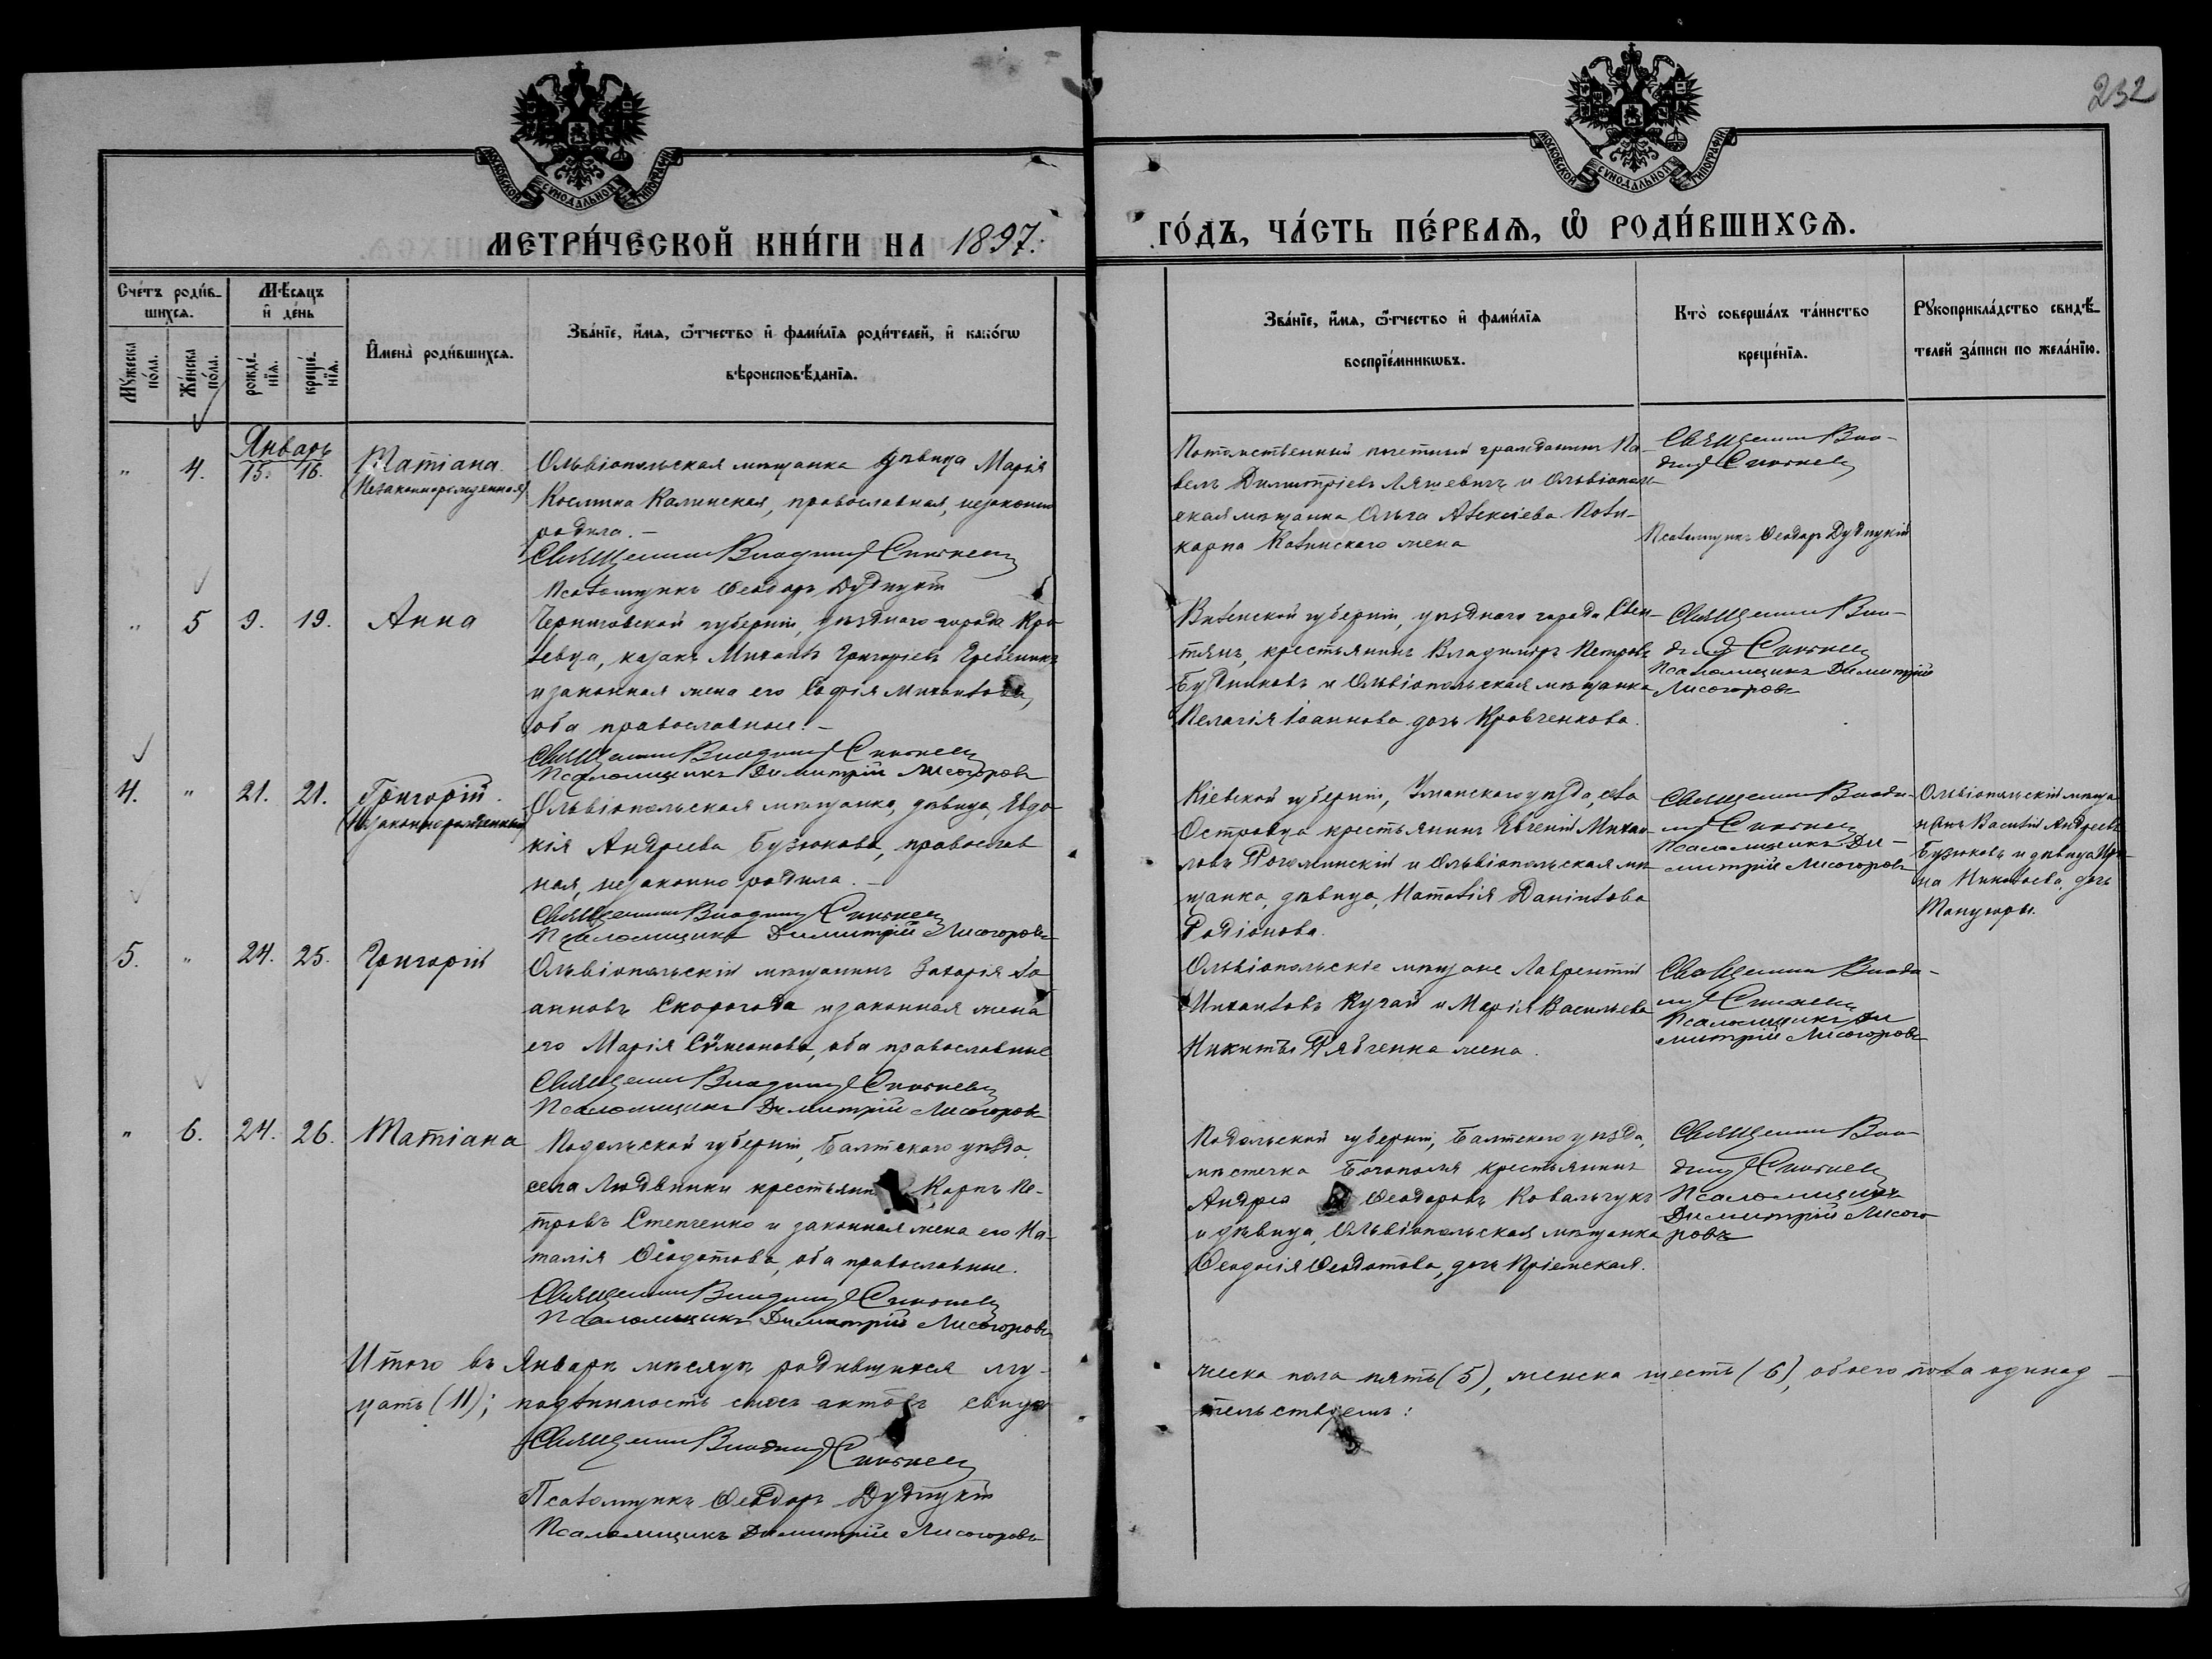 232
МОСКОВСКОЙ СѴНОДАЛЬНОЙ ТИПОГРАФІИ
МОСКОВСКОЙ СѴНОДАЛЬНОЙ ТИПОГРАФІИ
МЕТРИ́ЧЕСКОЙ КНИ́ГИ НА 1897.
ГО́ДЪ, ЧА́СТЬ ПЕ́РВАѦ, Ѡ҆ РОДИ́ВШИХСѦ.
Сче́тъ роди́в-
шихсѧ.
Мꙋ́жеска
по́ла.
Же́нска
по́ла.
Мѣ́сѧцъ
и҆ де́нь
рожде́-
нїѧ.
креще́-
нїѧ.
И҆мена̀ роди́вшихсѧ.
Зва́нїе, и҆́мѧ, ѻ҆́тчество и҆ фами́лїѧ роди́телей, и҆ како́гѡ
вѣроисповѣ́данїѧ.
Зва́нїе, и҆́мѧ, ѻ҆́тчество и҆ фами́лїѧ
воспрїе́мникѡвъ.
Кто̀ соверша́лъ та́инство
креще́нїѧ.
Рꙋкоприкла́дство свидѣ́-
телей за́писи по жела́нїю.
Январь
" 4. 15. 16.
Татіана
(Незаконнорожденная)
Ольвіопольская мѣщанка дѣвица Марія
Космина Калинская, православная, незаконно
родила. –
Священникъ Владимір
Псаломщикъ Ѳеодоръ Дудицкій
Потомственный почетный гражданинъ Па-
велъ Димитріевъ Ляшевичъ и Ольвіополь-
ская мѣщанка Ольга Алексіева Поли-
карпа Калинскаго жена
Священникъ Вла-
димір
Псаломщикъ Ѳеодоръ Дудицкій
" 5 9. 19.
Анна
Черниговской губерніи, уѣзднаго города Кро-
левца, казакъ Михаилъ Григоріевъ Гребеникъ
и законная жена его Софія Михаилова,
оба православные. –
Священникъ Владимір
Псаломщикъ Димитрій Лисогоровъ
Виленской губерніи, уѣзднаго города Свен-
тянъ, крестьянинъ Владиміръ Петровъ
Будниковъ и Ольвіопольская мѣщанка
Пелагія Іоаннова дочь Кравченкова.
Священникъ Вла-
димір
Псаломщикъ Димитрій
Лисогоровъ
4. " 21. 21.
Григорій.
(Незаконнорожденный)
Ольвіопольская мѣщанка, дѣвица, Евдо-
кія Андреева Бузюкова, православ-
ная, незаконно родила. –
Священникъ Владимір
Псаломщикъ Димитрій Лисогоровъ
Кіевской губерніи, Уманскаго уѣзда, села
Островца крестьянинъ Евгеній Михаи-
ловъ Рогожинскій и Ольвіопольская мѣ-
щанка, дѣвица, Наталія Даніилова
Родіонова.
Священникъ Влади-
мір
Псаломщикъ Ди-
митрій Лисогоровъ
Ольвіопольскій мѣща-
нинъ Василій Андреевъ
Бузюковъ и дѣвица Ири-
на Николаева, дочь
5. " 24. 25.
Григорій
Ольвіопольскій мѣщанинъ Захарія Іо-
анновъ Скорогода и законная жена
его Марія Сѵмеонова, оба православные
Священникъ Владимір
Псаломщикъ Димитрій Лисогоровъ
Ольвіопольскіе мѣщане Лаврентій
Михаиловъ Кучай и Марія Васильева
Никиты Рябченка жена.
Священникъ Влади-
мір
Псаломщикъ Ди-
митрій Лисогоровъ
" 6. 24. 26.
Татіана
Подольской губерніи, Балтскаго уѣзда,
села Людвинки крестьянинъ Карпъ Пе-
тровъ Степченко и законная жена его На-
талія Ѳеодотова, оба православные.
Священникъ Владимір
Псаломщикъ Димитрій Лисогоровъ
Подольской губерніи, Балтскаго уѣзда,
мѣстечка Богополя крестьянинъ
Андрей Ѳеодоровъ Ковальчукъ
и дѣвица, Ольвіопольская мѣщанка
Ѳеодосія Ѳеодотова, дочь Пріемская.
Священникъ Вла-
димір
Псаломщикъ
Димитрій Лисого-
ровъ
Итого въ Январѣ мѣсяцѣ родившихся му-
жеска пола пять (5), женска шесть (6), обоего пола одинад-
цать (11); подлинность сихъ актовъ свидѣ-
тельствуемъ:
Священникъ Владимір
Псаломщикъ Ѳеодоръ Дудицкій
Псаломщикъ Димитрій Лисогоровъ